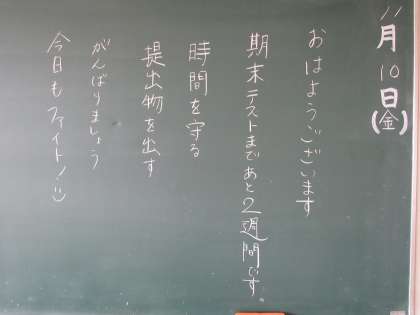 11月10日(金)
おはようございます
期末テストまであと2週間です。
時間を守る
提出物を出す
がんばりましょう
今日もファイト!:)